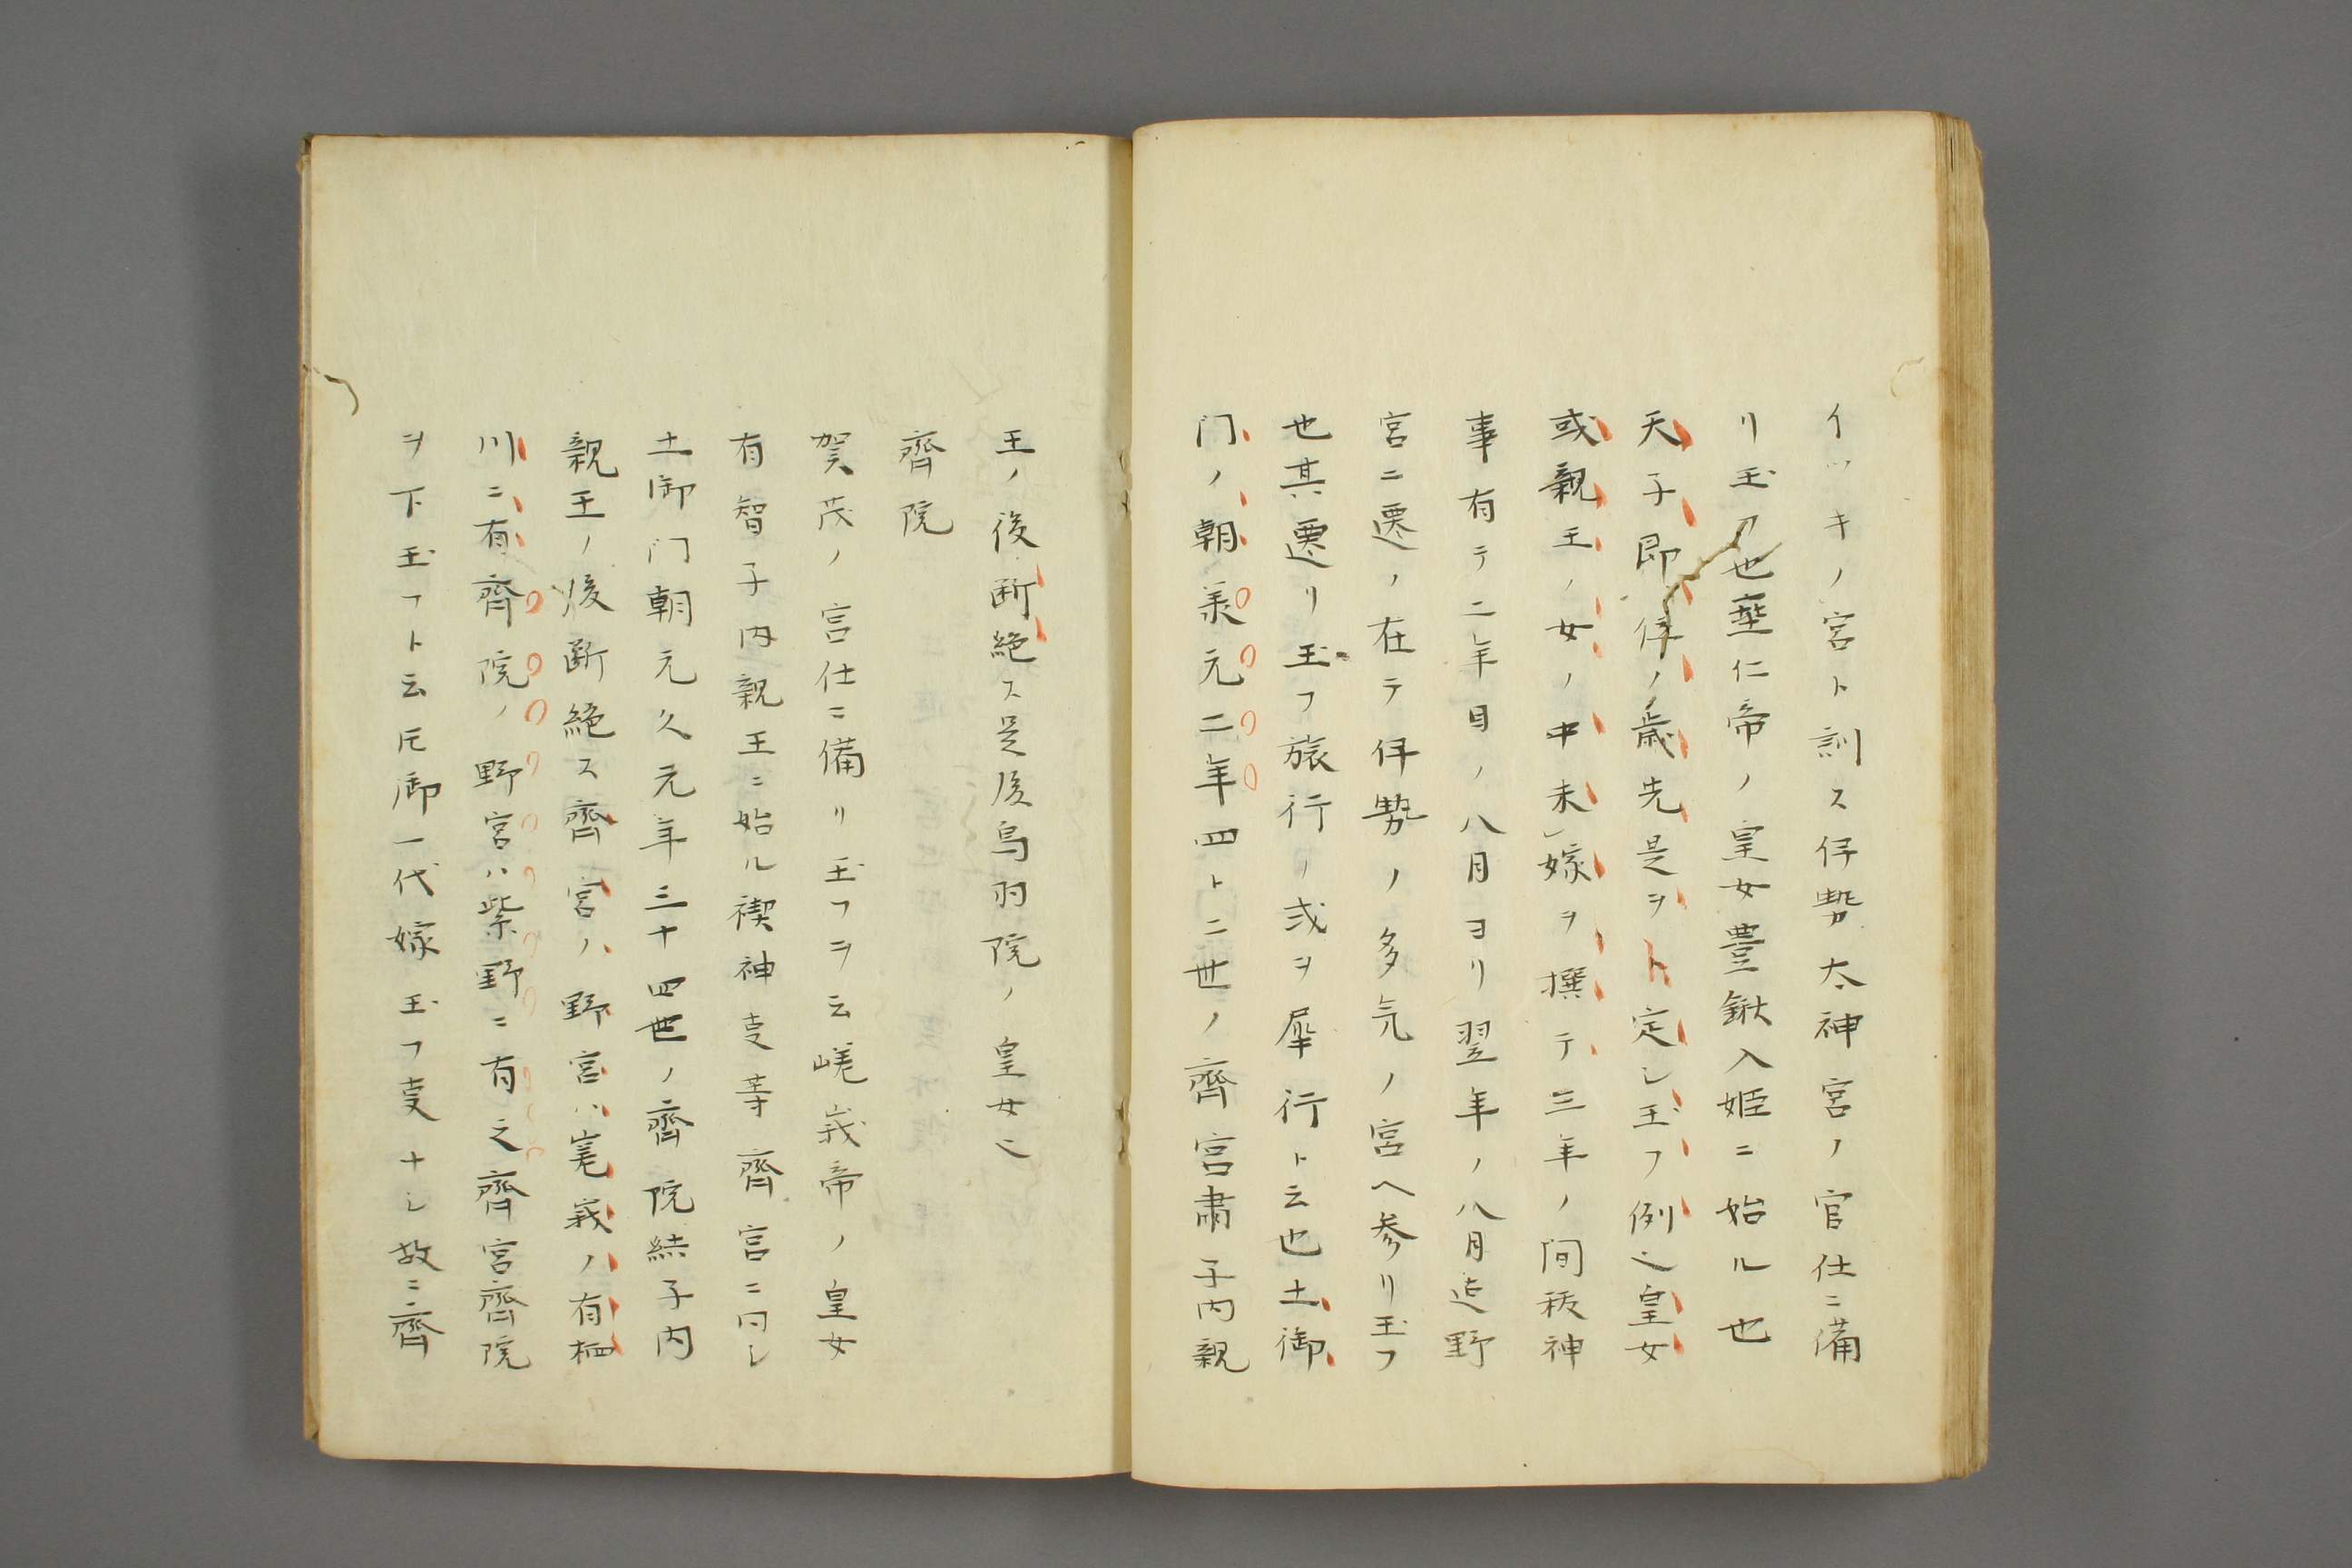 イツキノ宮ト訓ス伊勢太神宮ノ官仕ニ備
リ玉フ也垂仁帝ノ皇女豊鍬入姫ニ始ル也
天子即位ノ歳先是ヲト定シ玉フ例之皇女
或親王ノ女ノ中未嫁ヲ撰テ三年ノ間祓神
事有テ二年目ノ八月ヨリ翌年ノ八月迠野
宮ニ遷ノ在テ伊勢ノ多気ノ宮ヘ参リ玉フ
也其遷リ玉フ旅行ノ式ヲ犀行ト云也土御
门ノ朝兼元二年四十二世ノ齊宮粛子内親
王ノ後断絶ス是後鳥羽院ノ皇女也
齊院
賀茂ノ宮仕ニ備リ玉フヲ云嵯峩帝ノ皇女
有智子内親王ニ始ル禊神支等齊宮ニ同シ
土御门朝元久元年三十四世ノ齊院結子内
親王ノ後断絶ス齊宮ノ野宮ハ嵳峩ノ有栖
川ニ有齊院ノ野宮ハ紫野ニ有之齊宮齊院
ヲ下玉フト云𪜈御一代嫁玉フ支ナシ故ニ齊